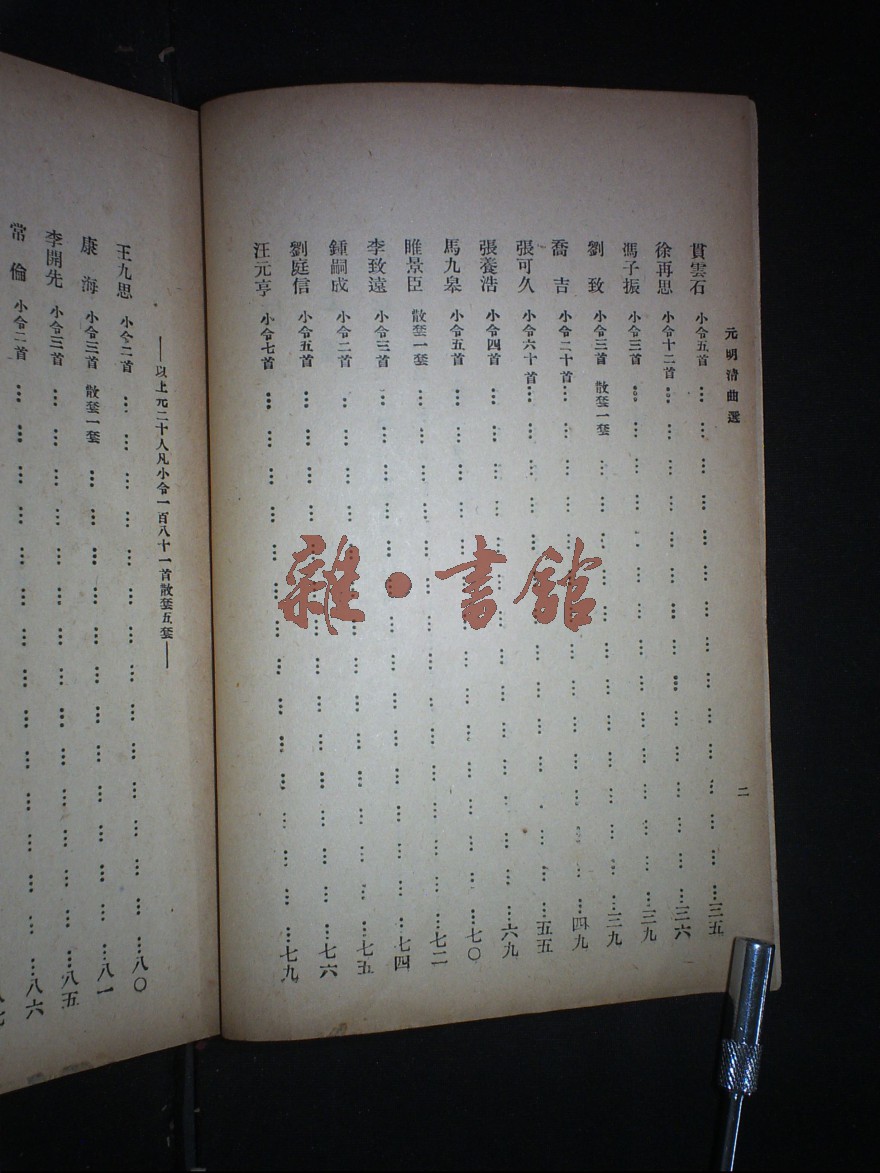 元明清曲選
二
貫雲石 小令五首………三五
徐再思 小令十二首………三六
馮子振 小令三首………三九
劉致 小令三首 散套一套………三九
喬吉 小令二十首………四九
張可久 小令六十首………五五
張養浩 小令四首………六九
馬九皋 小令五首………七〇
睢景臣 散套一套………七二
李致遠 小令三首………七四
鍾嗣成 小令二首………七五
劉庭信 小令五首………七六
汪元亨 小令七首………七九
——以上元二十人凡小令一百八十一首散套五套——
王九思 小令二首………八〇
康海 小令三首 散套一套………八一
李開先 小令三首………八五
常倫 小令二首………八六
雜·書館